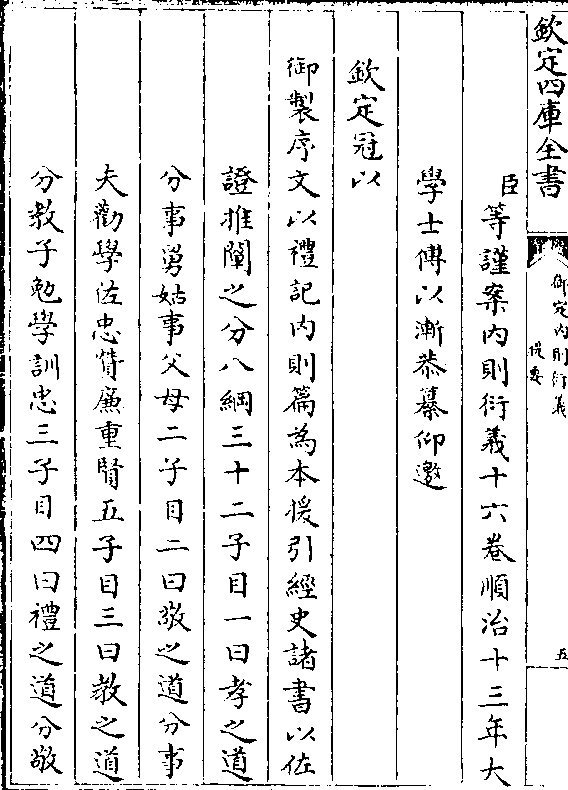 欽定四庫全書
御定内則衍義
提要
五
臣等謹案内則衍義十六卷順治十三年大
學士傅以漸恭纂仰邀
欽定冠以
御製序文以禮記内則篇為本援引經史諸書以佐
證推闡之分八綱三十二子目一曰孝之道
分事舅姑事父母二子目二曰敬之道分事
夫勸學佐忠贊廉重賢五子目三曰教之道
分教子勉學訓忠三子目四曰禮之道分敬